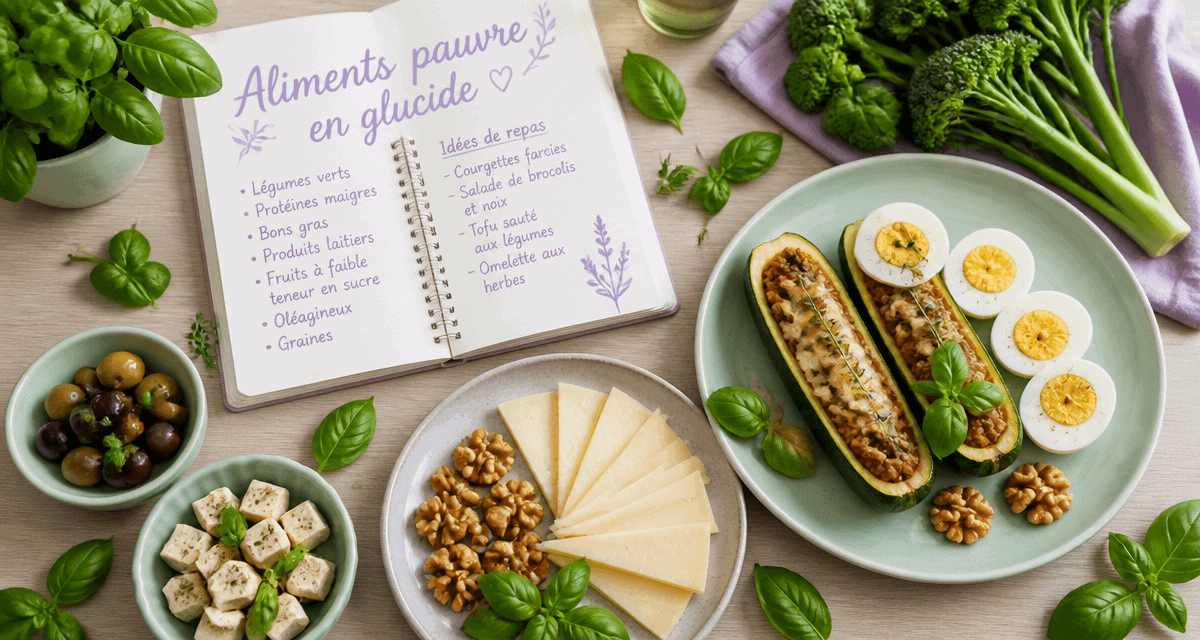 Aliments pauvre
en glucide
• Légumes verts
• Protéines maigres
• Bons gras
• Produits laitiers
• Fruits à faible
teneur en sucre
• Oléagineux
• Graines
Idées de repas
- Courgettes farcies
- Salade de brocolis
et noix
- Tofu sauté
aux légumes
- Omelette aux
herbes